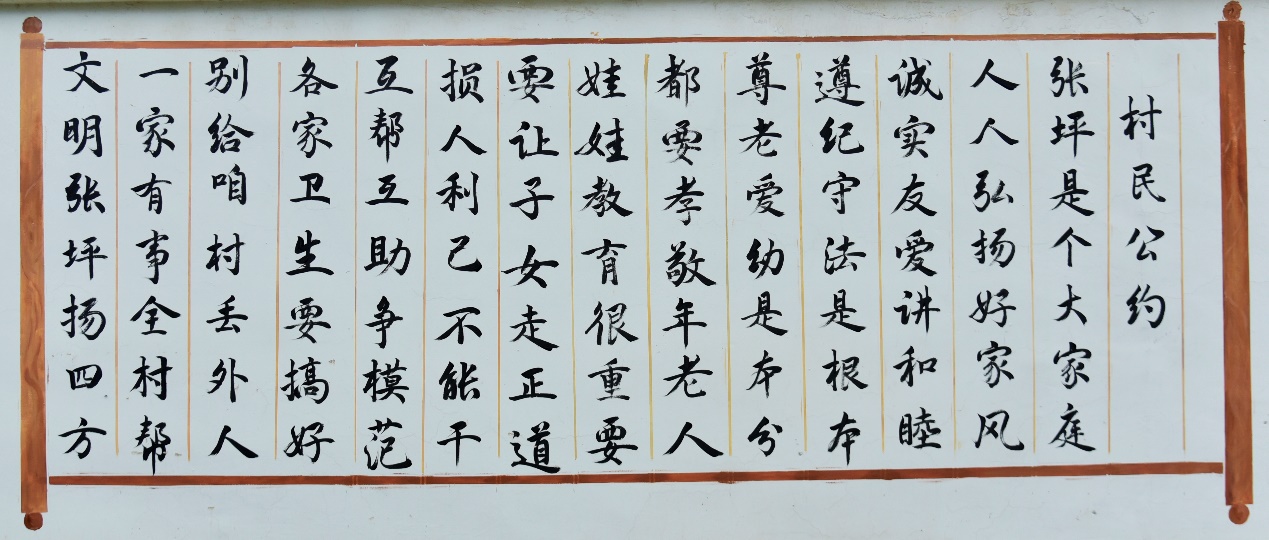 村民公约
张坪是个大家庭
人人弘扬好家风
诚实友爱讲和睦
遵纪守法是根本
尊老爱幼是本分
都要孝敬年老人
娃娃教育很重要
要让子女走正道
损人利己不能干
互帮互助争模范
各家卫生要搞好
别给咱村丢外人
一家有事全村帮
文明张坪扬四方